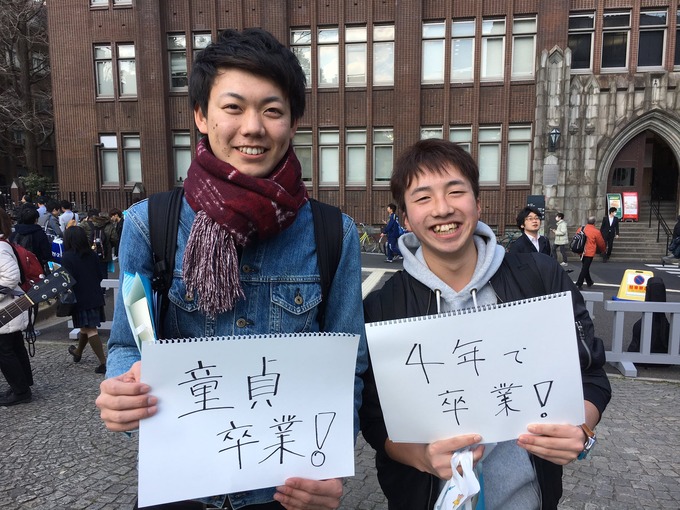 童貞
卒業!
4年で
卒業!